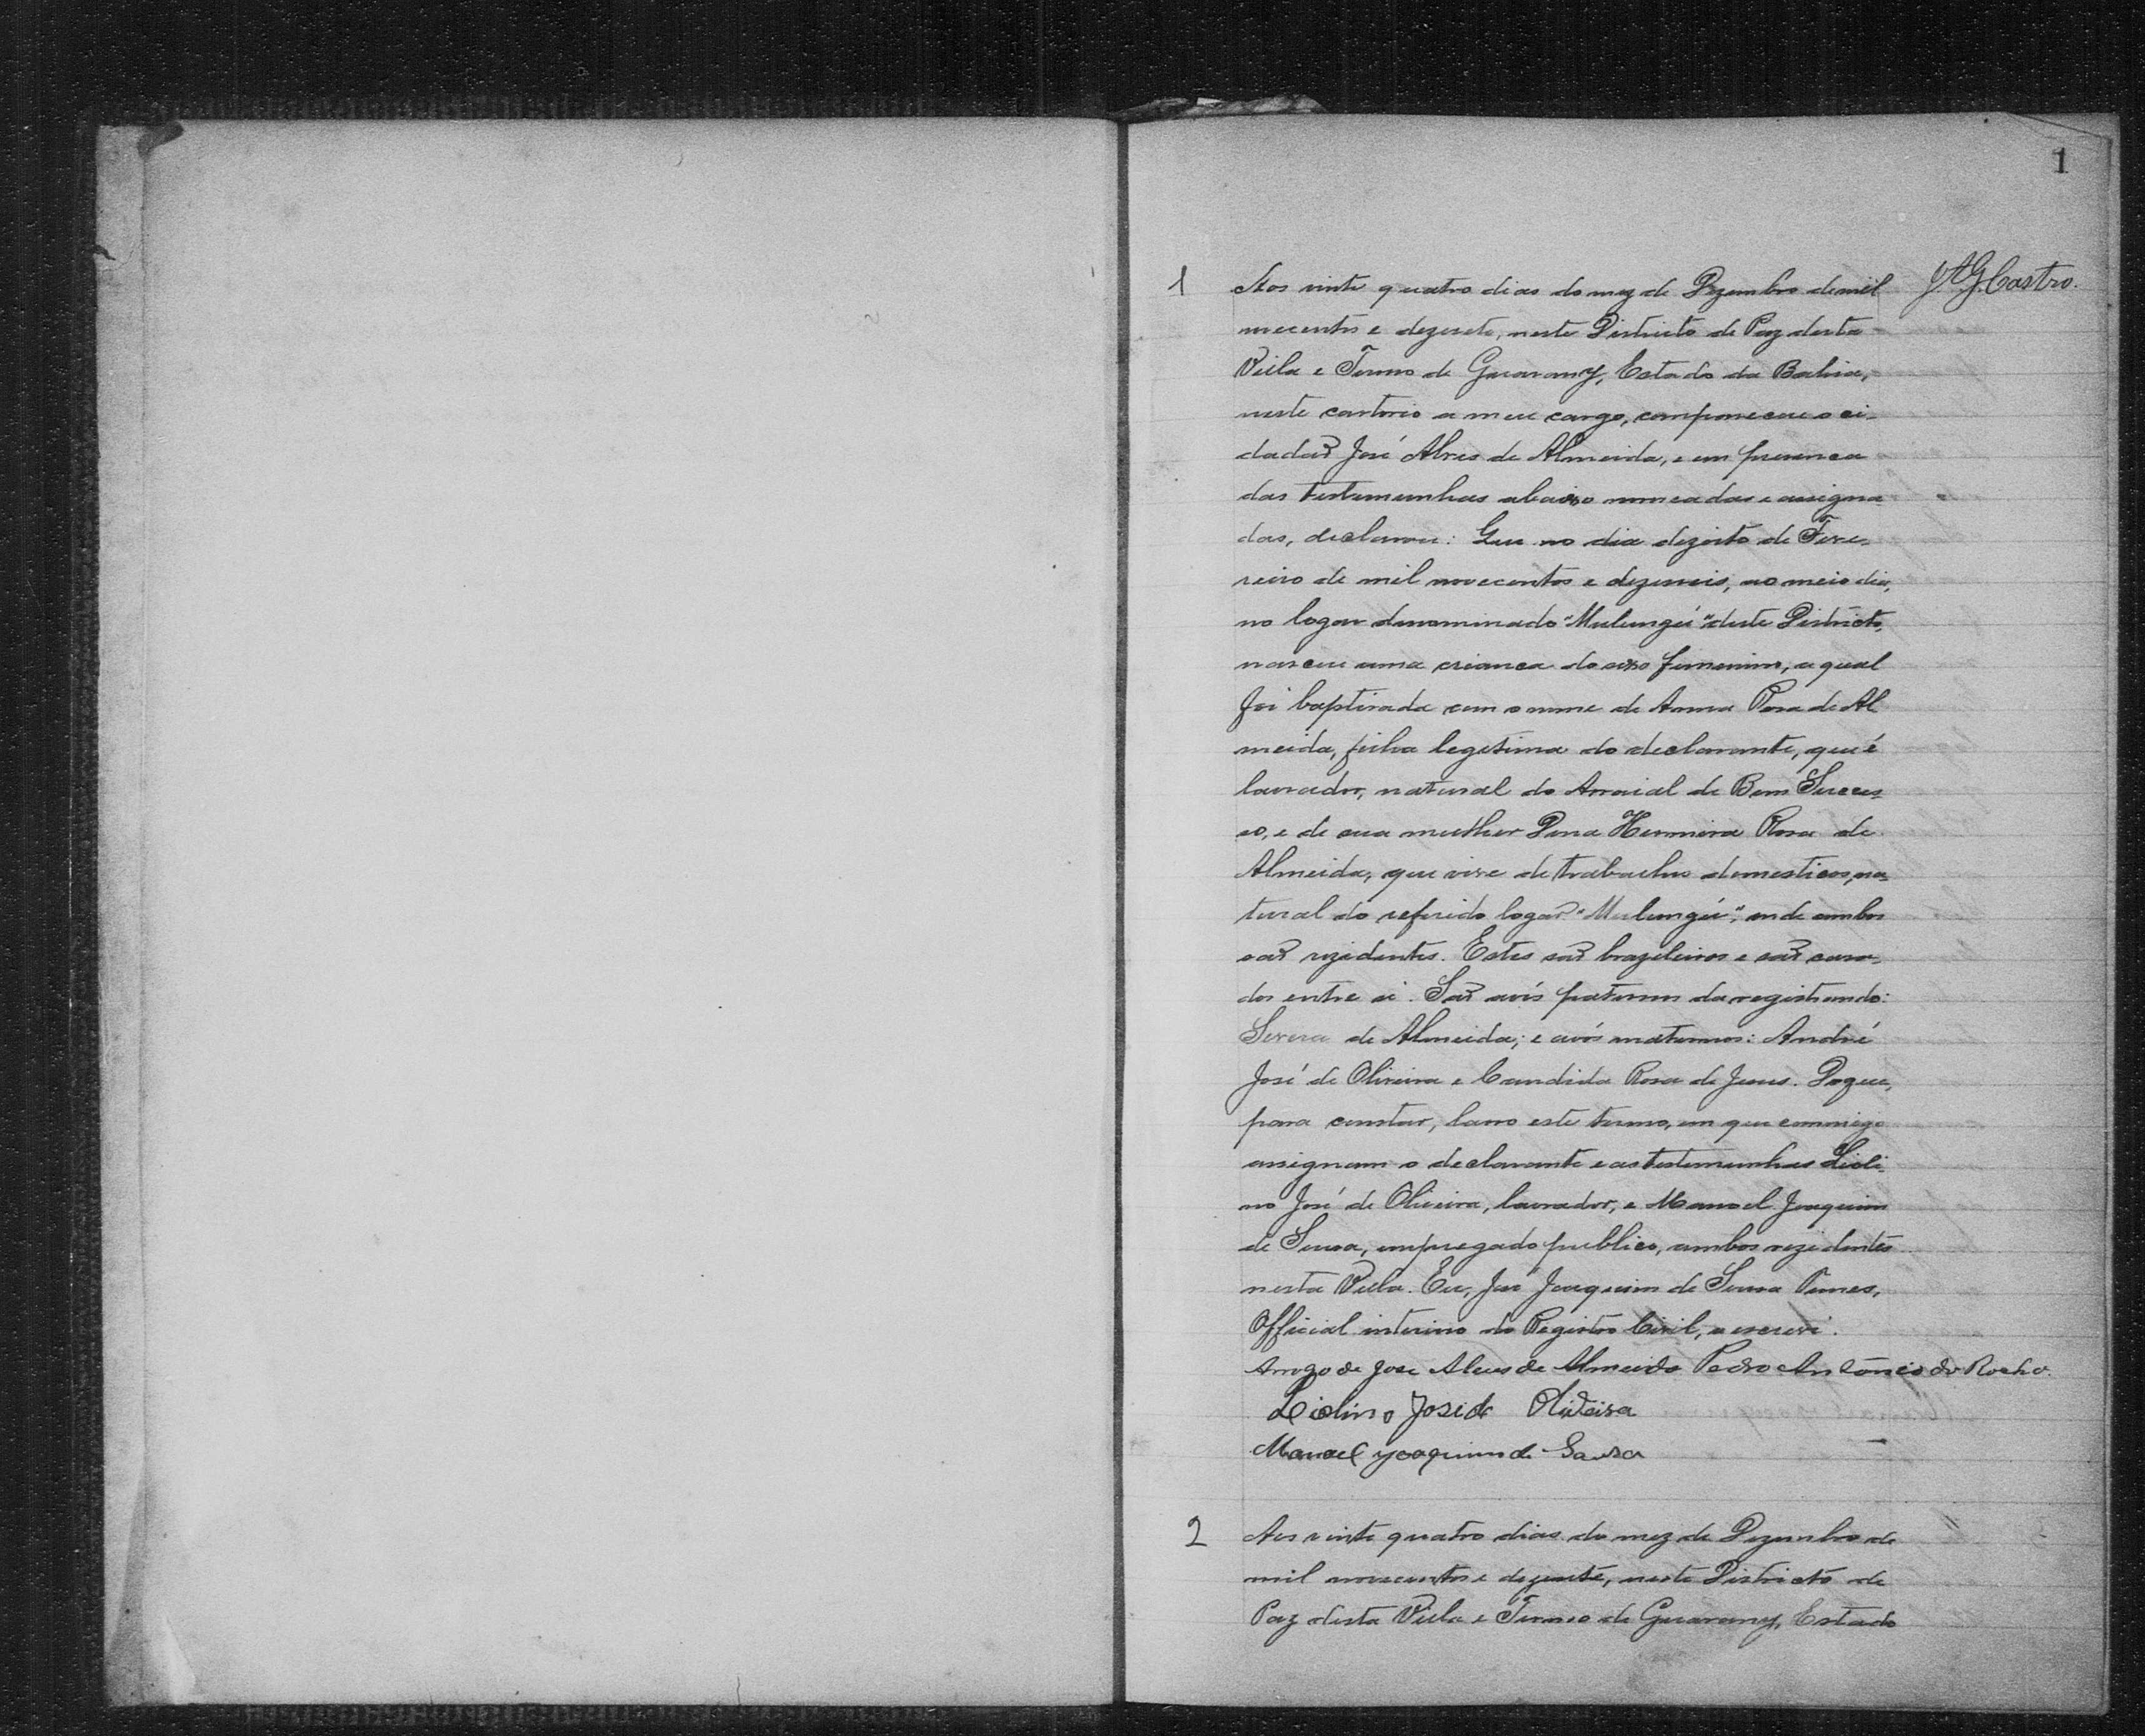 1
1 Aos vinte quatro dias do mez de Dezembro de mil
J. A. G. Castro.
novecentos e dezesete, neste Districto de Paz desta
Villa e Termo de Guarany, Estado da Bahia,
neste cartorio a meu cargo, compareceu o ci-
dadão José Alves de Almeida, e em presença
das testemunhas abaixo nomeadas e assigna-
das, declarou: Que no dia dezoito de Feve-
reiro de mil novecentos e dezeseis, ao meio dia,
no logar denominado "Mulungú" deste Districto,
nasceu uma creança do sexo femenino, a qual
foi baptisada com o nome de Anna Rosa de Al
meida, filha legitima do declarante, que é
lavrador, natural do Arraial de Bom Succes-
so, e de sua mulher Dona Hermina Rosa de
Almeida, que vive de trabalhos domesticos, na-
tural do referido logar "Mulungú", onde ambos
são rezidentes. Estes são brazileiros e são casa-
dos entre si. São avós paternos da registrando:
Severa de Almeida; e avós maternos: André
José de Oliveira e Candida Rosa de Jesus. Do que,
para constar, lavro este termo, em que commigo
assignam o declarante e as testemunhas Lioli-
no José de Oliveira, lavrador, e Manoel Joaquim
de Sousa, empregado publico, ambos rezidentes
nesta Villa. Eu, José Joaquim de Sousa Nunes,
Official interino do Registro Civil, o escrevi.
Arrogo de Jose Alves de Almeida Pedro Antonio da Rocha.
Liolino José de Oliveira
Manoel Joaquim de Sousa
2 Aos vinte quatro dias do mez de Dezembro de
mil novecentos e dezesete, neste Districto de
Paz desta Villa e Termo de Guarany, Estado